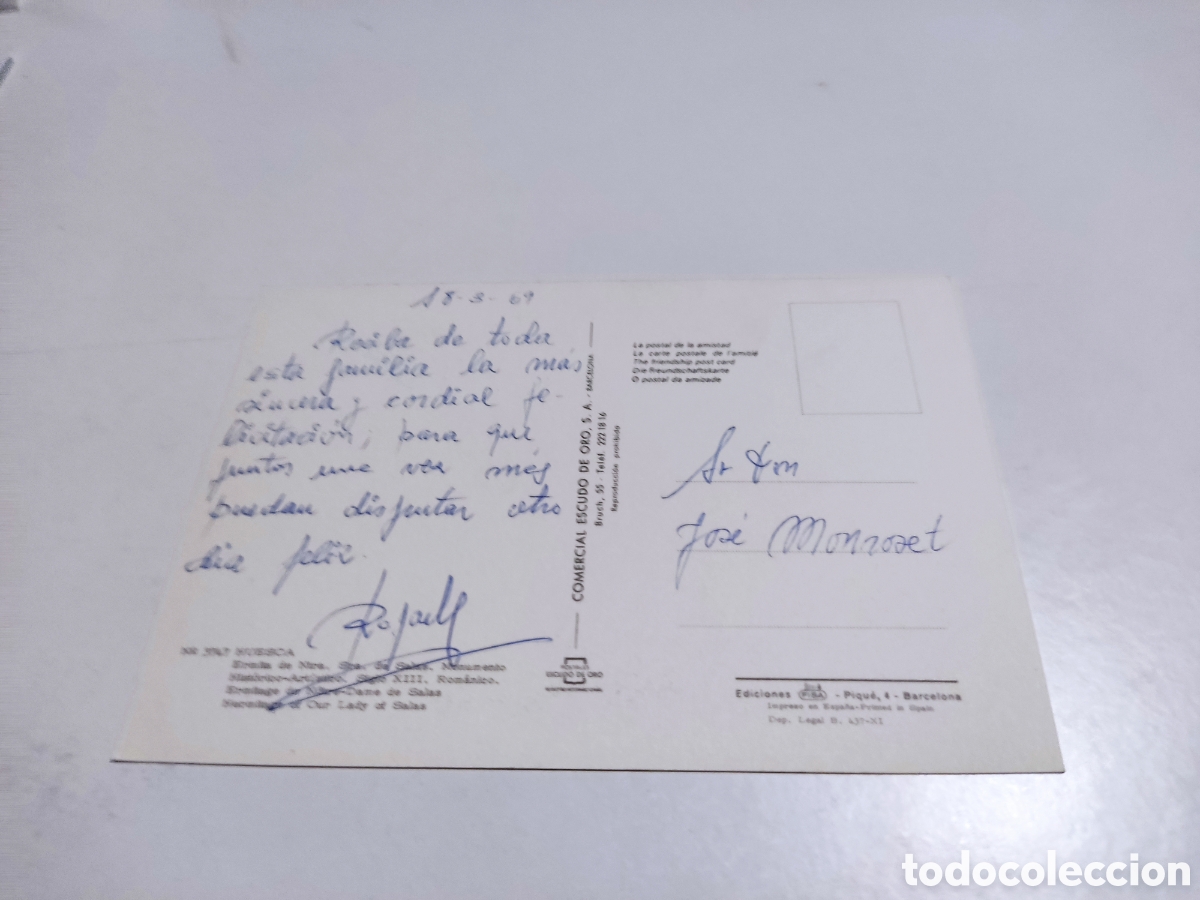 18-3-69
Reciba de toda
esta familia la más
sincera y cordial fe-
licitación, para que
juntos una vez más
puedan disfrutar otro
dia feliz.
Rafael
HUESCA
Ermita de Ntra. Sra. de Salas. Monumento
Histórico-Artístico. Siglo XIII. Románico.
Ermitage de Nôtre-Dame de Salas
of Our Lady of Salas
COMERCIAL ESCUDO DE ORO, S. A. - BARCELONA
Bruch, 55 - Teléf. 222 18 16
Reproducción prohibida
ESCUDO DE ORO
La postal de la amistad
La carte postale de l'amitié
The friendship post card
Die freundschaftskarte
O postal da amizade
Sr Don
José Monroset
Ediciones PISA - Piqué, 4 - Barcelona
Impreso en España-Printed in Spain
Dep. Legal B. 437-XI
todocoleccion